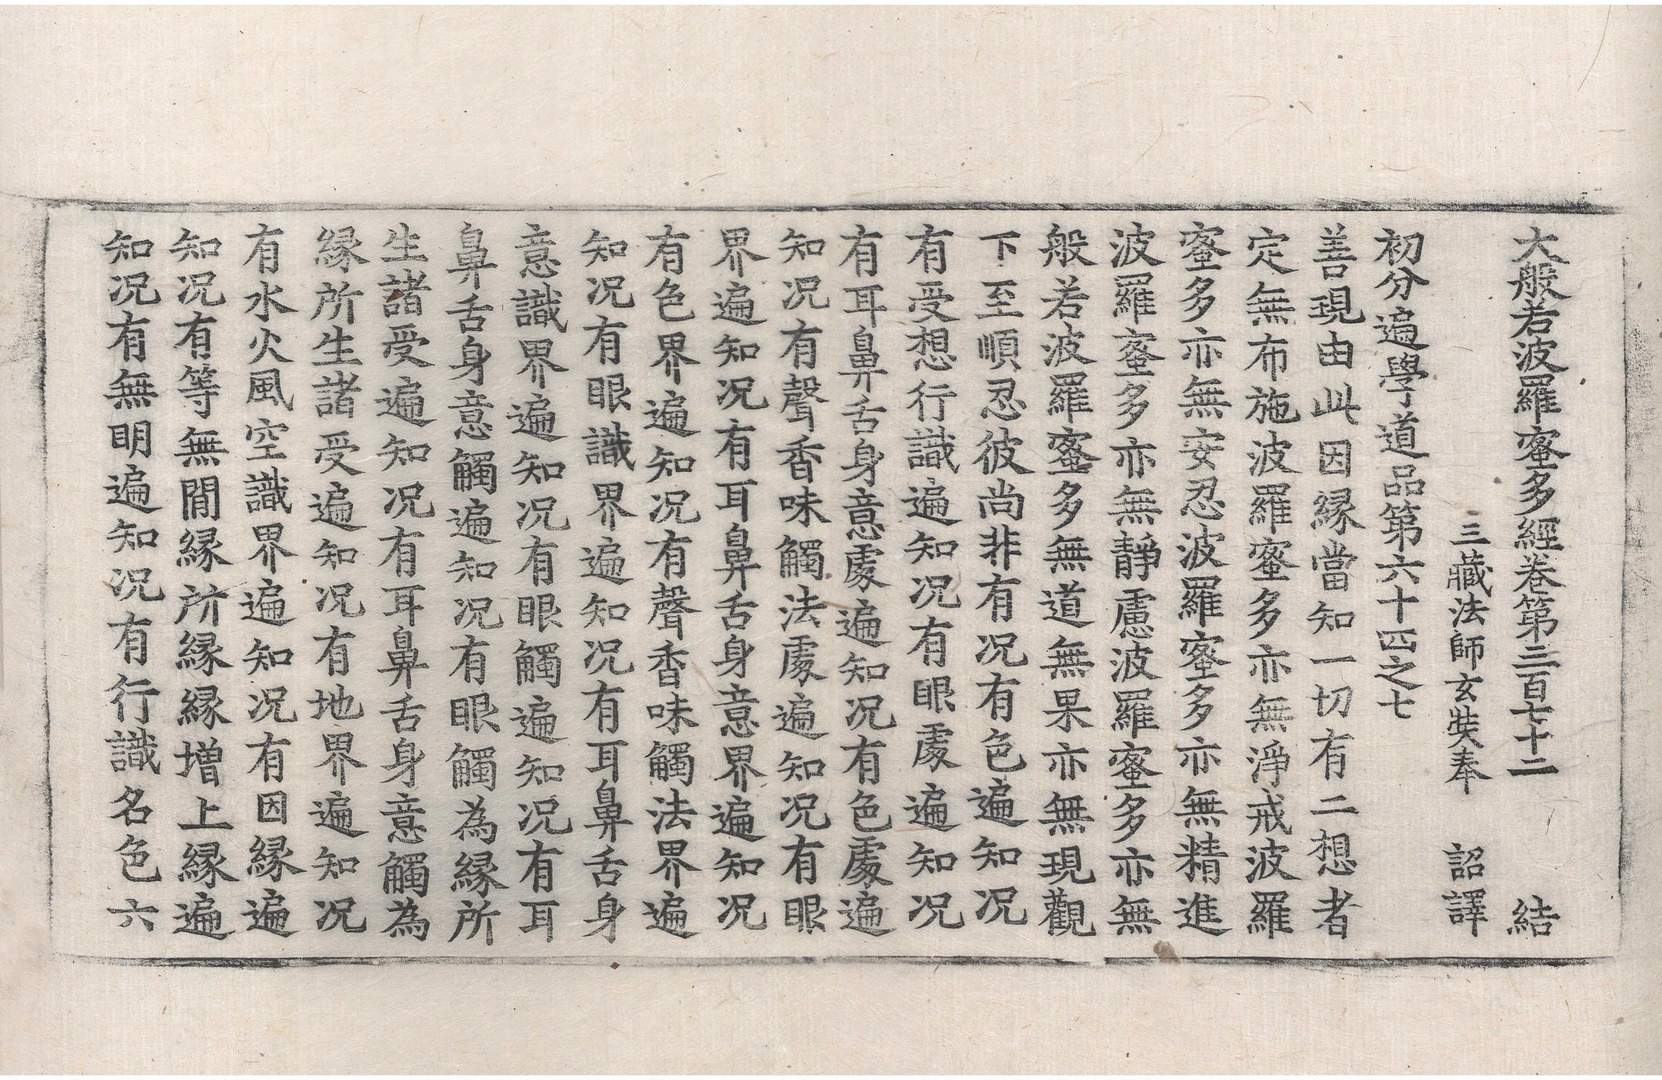 大般若波羅蜜多經卷第三百七十二 結
三藏法師玄奘奉 詔譯
初分遍學道品第六十四之七
善現由此因緣當知一切有二想者
定無布施波羅蜜多亦無淨戒波羅
蜜多亦無安忍波羅蜜多亦無精進
波羅蜜多亦無靜慮波羅蜜多亦無
般若波羅蜜多無道無果亦無現觀
下至順忍彼尚非有况有色遍知况
有受想行識遍知况有眼處遍知况
有耳鼻舌身意處遍知况有色處遍
知况有聲香味觸法處遍知况有眼
界遍知况有耳鼻舌身意界遍知况
有色界遍知况有聲香味觸法界遍
知况有眼識界遍知况有耳鼻舌身
意識界遍知况有眼觸遍知况有耳
鼻舌身意觸遍知况有眼觸為緣所
生諸受遍知况有耳鼻舌身意觸為
緣所生諸受遍知况有地界遍知况
有水火風空識界遍知况有因緣遍
知况有等無間緣所緣緣增上緣遍
知况有無明遍知况有行識名色六